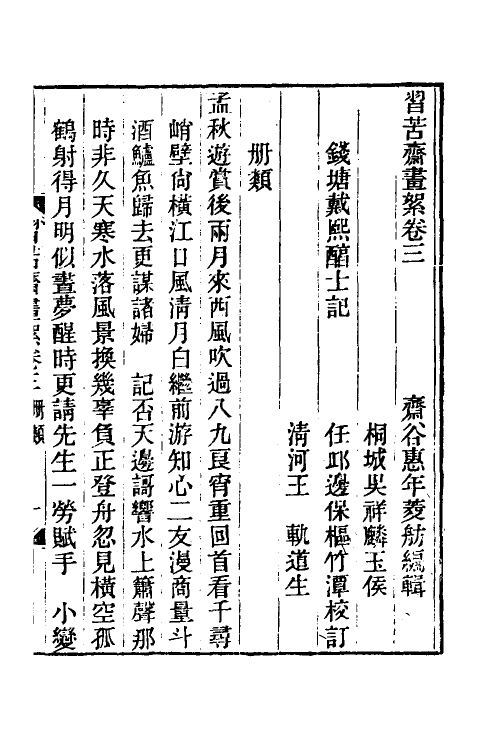 習苦齋畫絮卷三　　齋谷惠年菱舫編輯
桐城吳祥麟玉侯
錢塘戴熙醇士記　　任邱邊保樞竹潭校訂
清河王　軌道生
册類
孟秋遊賞後兩月來西風吹過八九良宵重回首看千尋
峭壁尙橫江口風淸月白繼前游知心二友漫商量斗
酒鱸魚歸去更謀諸婦　記否天邊謌響水上簫聲那
時非久天寒水落風景換幾辜負正登舟忽見橫空孤
鶴射得月明似晝夢醒時更請先生一勞賦手　小變
習苦齋畫絮卷三　册類　一